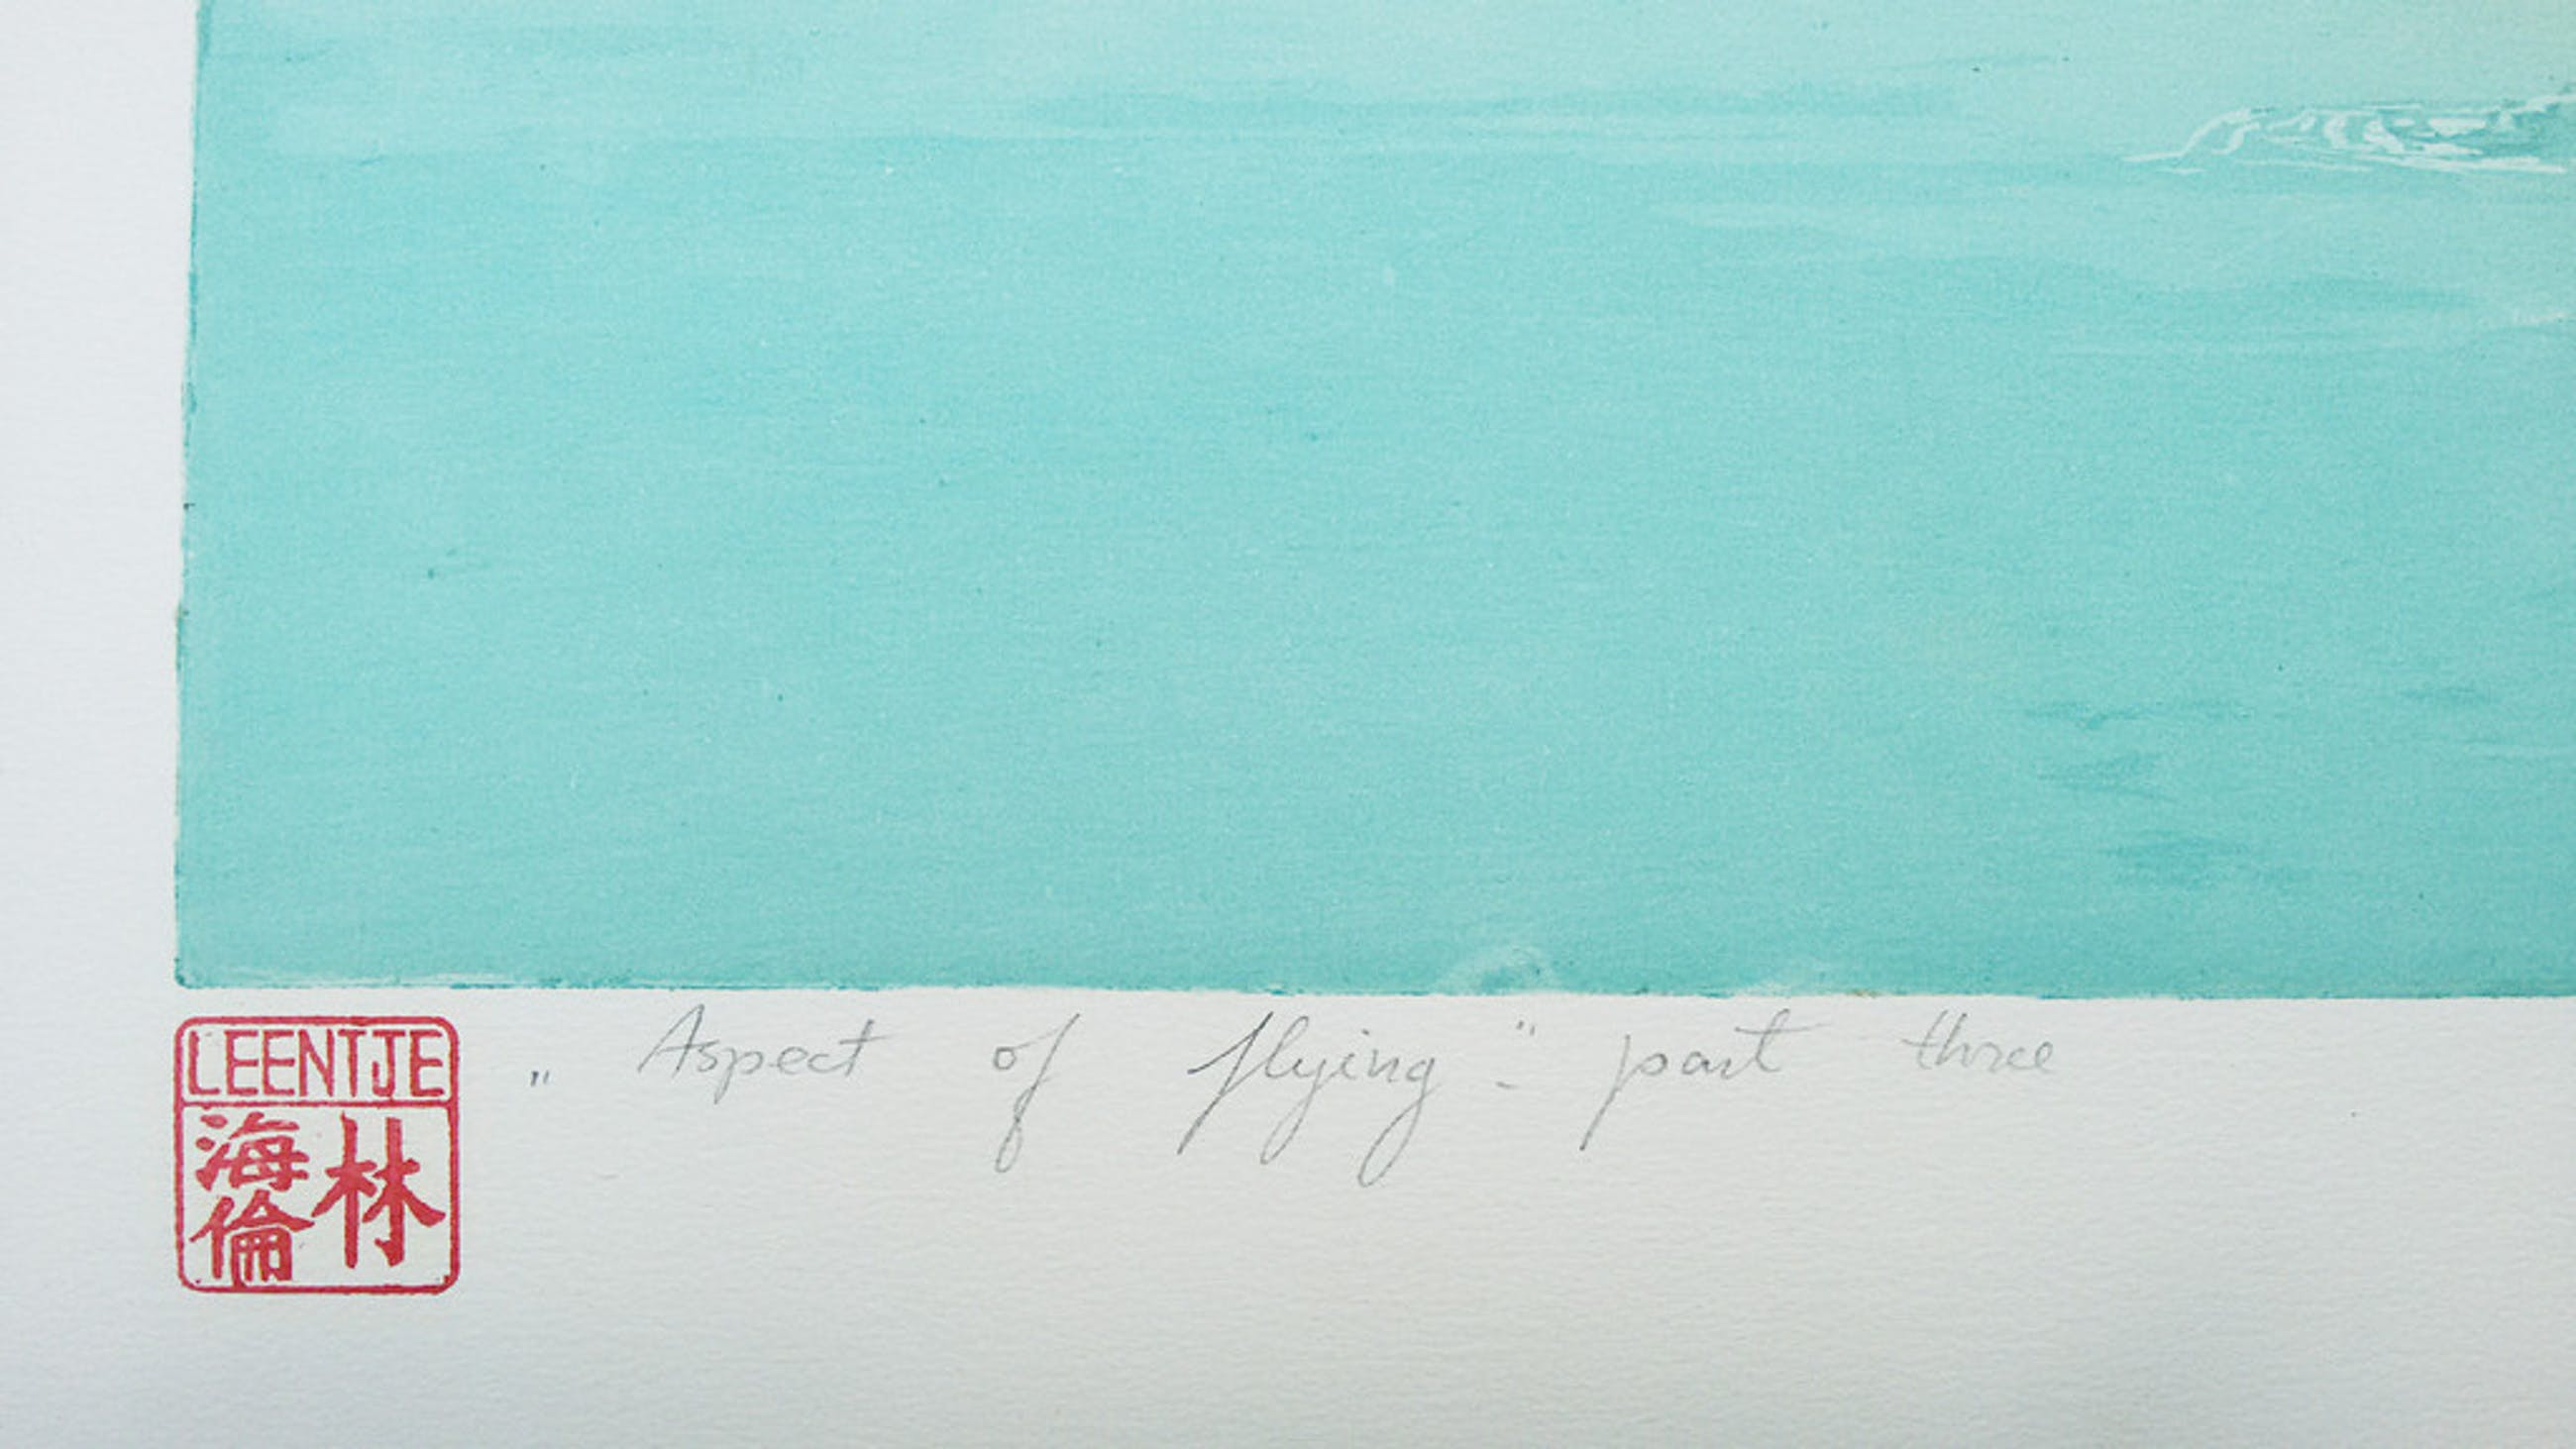 LEENTJE
林
海倫
„ Aspect of flying" - part three